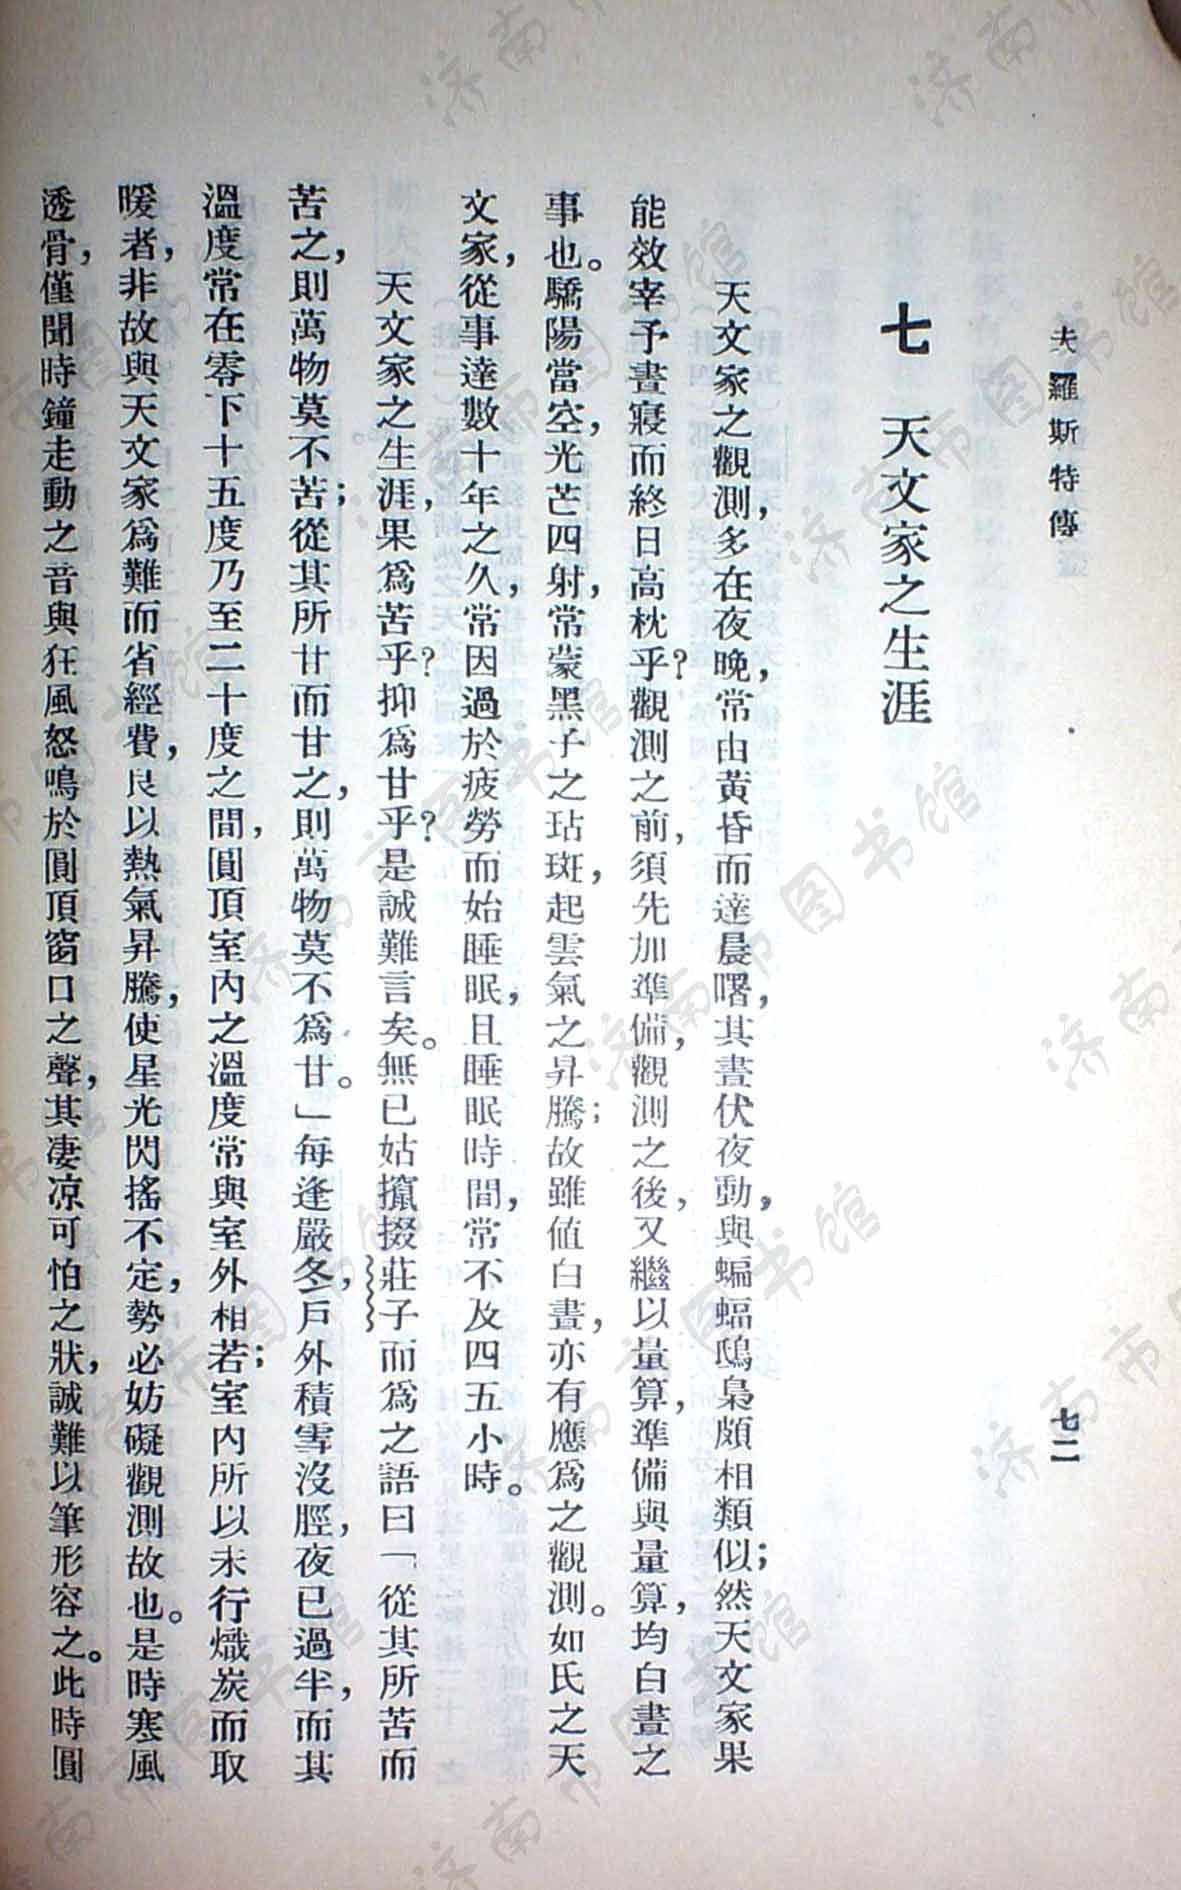 夫羅斯特傳
七二
七 天文家之生涯
天文家之觀測，多在夜晚，常由黃昏而達晨曙，其晝伏夜動，與蝙蝠鴟梟頗相類似；然天文家果
能效宰予晝寢而終日高枕乎？觀測之前，須先加準備，觀測之後，又繼以量算，準備與量算，均白晝之
事也。驕陽當空，光芒四射，常蒙黑子之玷斑，起雲氣之昇騰；故雖值白晝，亦有應爲之觀測。如氏之天
文家，從事達數十年之久，常因過於疲勞而始睡眠，且睡眠時間，常不及四五小時。
天文家之生涯，果爲苦乎？抑爲甘乎？是誠難言矣。無已，姑攛掇莊子而爲之語曰「從其所苦而
苦之，則萬物莫不苦；從其所甘而甘之，則萬物莫不爲甘。」每逢嚴冬，戶外積雪沒脛，夜已過半，而其
溫度常在零下十五度乃至二十度之間，圓頂室內之溫度常與室外相若；室內所以未行熾炭而取
暖者，非故與天文家爲難而省經費，良以熱氣昇騰，使星光閃搖不定，勢必妨礙觀測故也。是時寒風
透骨，僅聞時鐘走動之音與狂風怒鳴於圓頂窗口之聲，其凄凉可怕之狀，誠難以筆形容之。此時圓
济南市图书馆